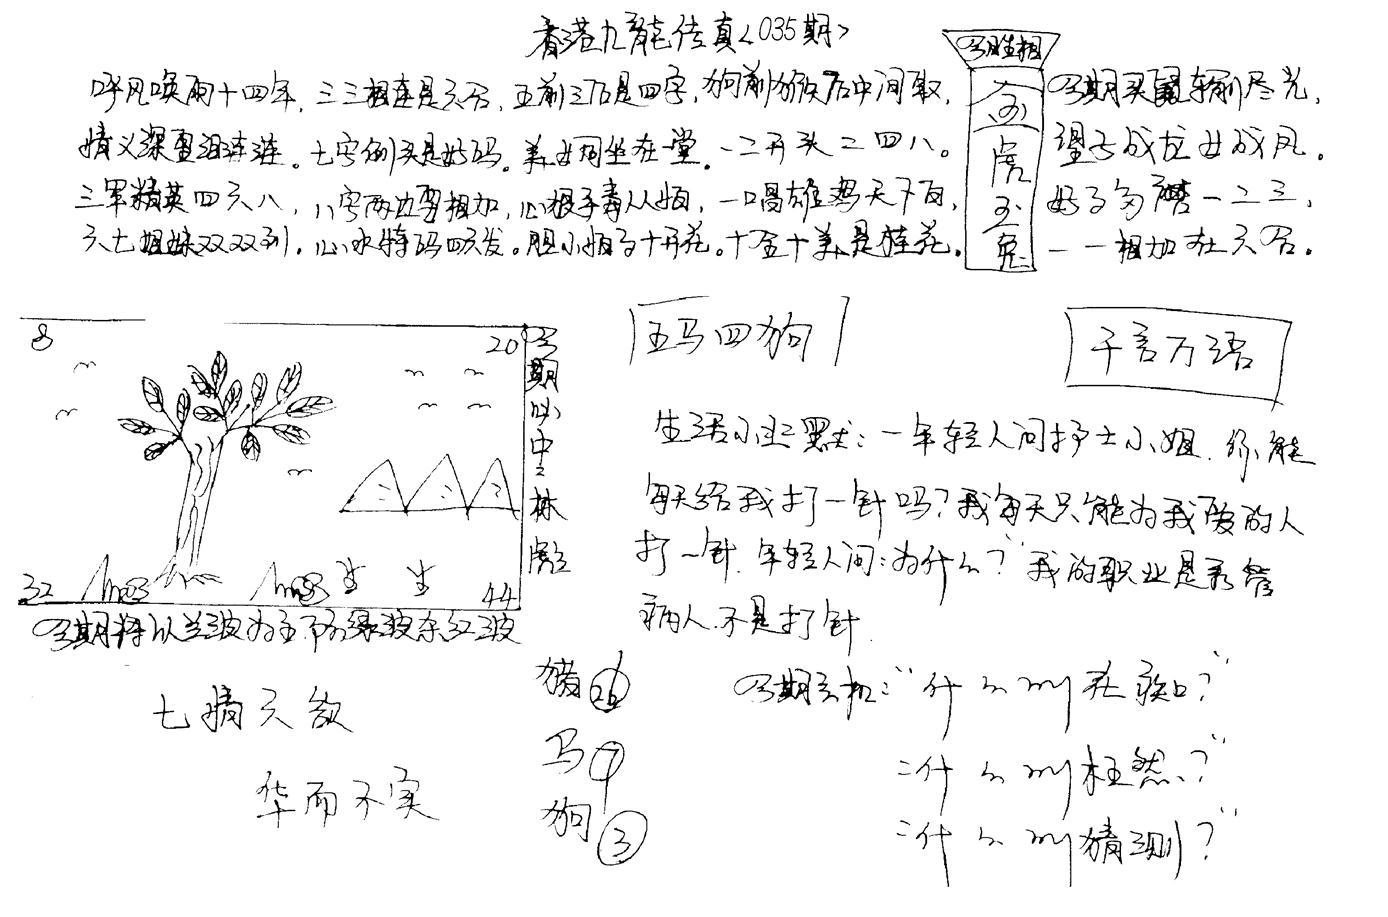 香港九龍传真<035期>
今期生相
金虎玉兔
呼风唤雨十四年,三三相连是六合,五前三后是四字,狗前猴后中间取,
情义深重泪涟涟。七字例头是好码。美女同坐在堂。一二开头二四八。
三军精英四六八,八字两边要相加,心狠手毒从,一唱雄鸡天下白,
六七姐妹双双到,心水特码四六发。胆小十开花。十全十美是桂花。
今期买尽光,
望子成龙女成凤。
好子一二三,
一一相加在六合。
8
20
32
44
今期必中生肖
五马四狗
千言万语
生活小幽默:一年轻人问护士小姐.你能
每天给我打一针吗?我每天只能为我爱的人
打一针.年轻人问:为什么?"我的职业是看管
病人.不是打针.
今期将以兰波为主下防绿波杀红波
七情六欲
华而不实
猪 26
马 7
狗 3
今期玄机:"什么叫在?"
:什么叫枉然?"
:什么叫猜测?"